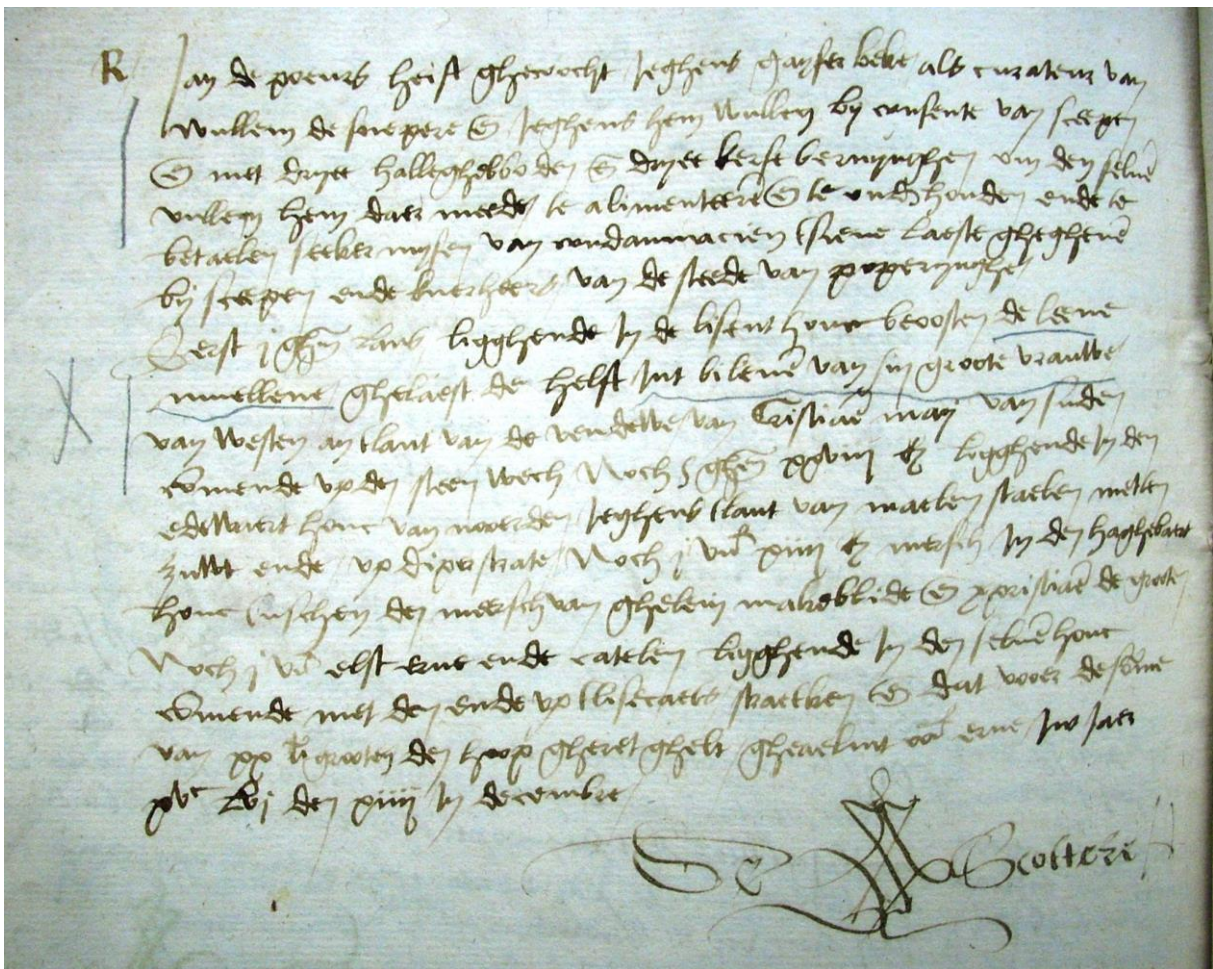 R Jan de poeurs heift ghecocht Jeghens Jan beke als curateur van
wullem de snepere & Jeghens hem wullem by consente van scepen
& met dryee halleghebboden & dryee kerst bernynghen om den selven
wullem hem daer mede te alimenteeren & te ond'houden ende te
betaelen seeker van condamnacien tsiene laeste ghegheven
by scepen ende kuerheers van de stede van poperynghe
Eerst j lans ligghende in de lisent houc beoosten de leene
muellene ghelaest de helft int bileven van sin groote vrauwe
van westen an tlant van de weuewe van Cristiaen may van suden
commende up den steen wech Noch xxviij ligghende in den
edewaert houc van noorden Jeghens tlant van maeken staelen metten
zuut ende up diper strate Noch j xiiij mersch in den haghebaert
houc tusschen den meersch van ghelein makeblide & xpristiaen de groote
Noch j elst erve ende catelen ligghende in den selven houc
commende met den ende up tlisecaets straetken & dat voor de somme
van xx grooten den hoop gheret ghelt erve Int Jaer
xvc Lvj den xiiij in decembre
Scottere